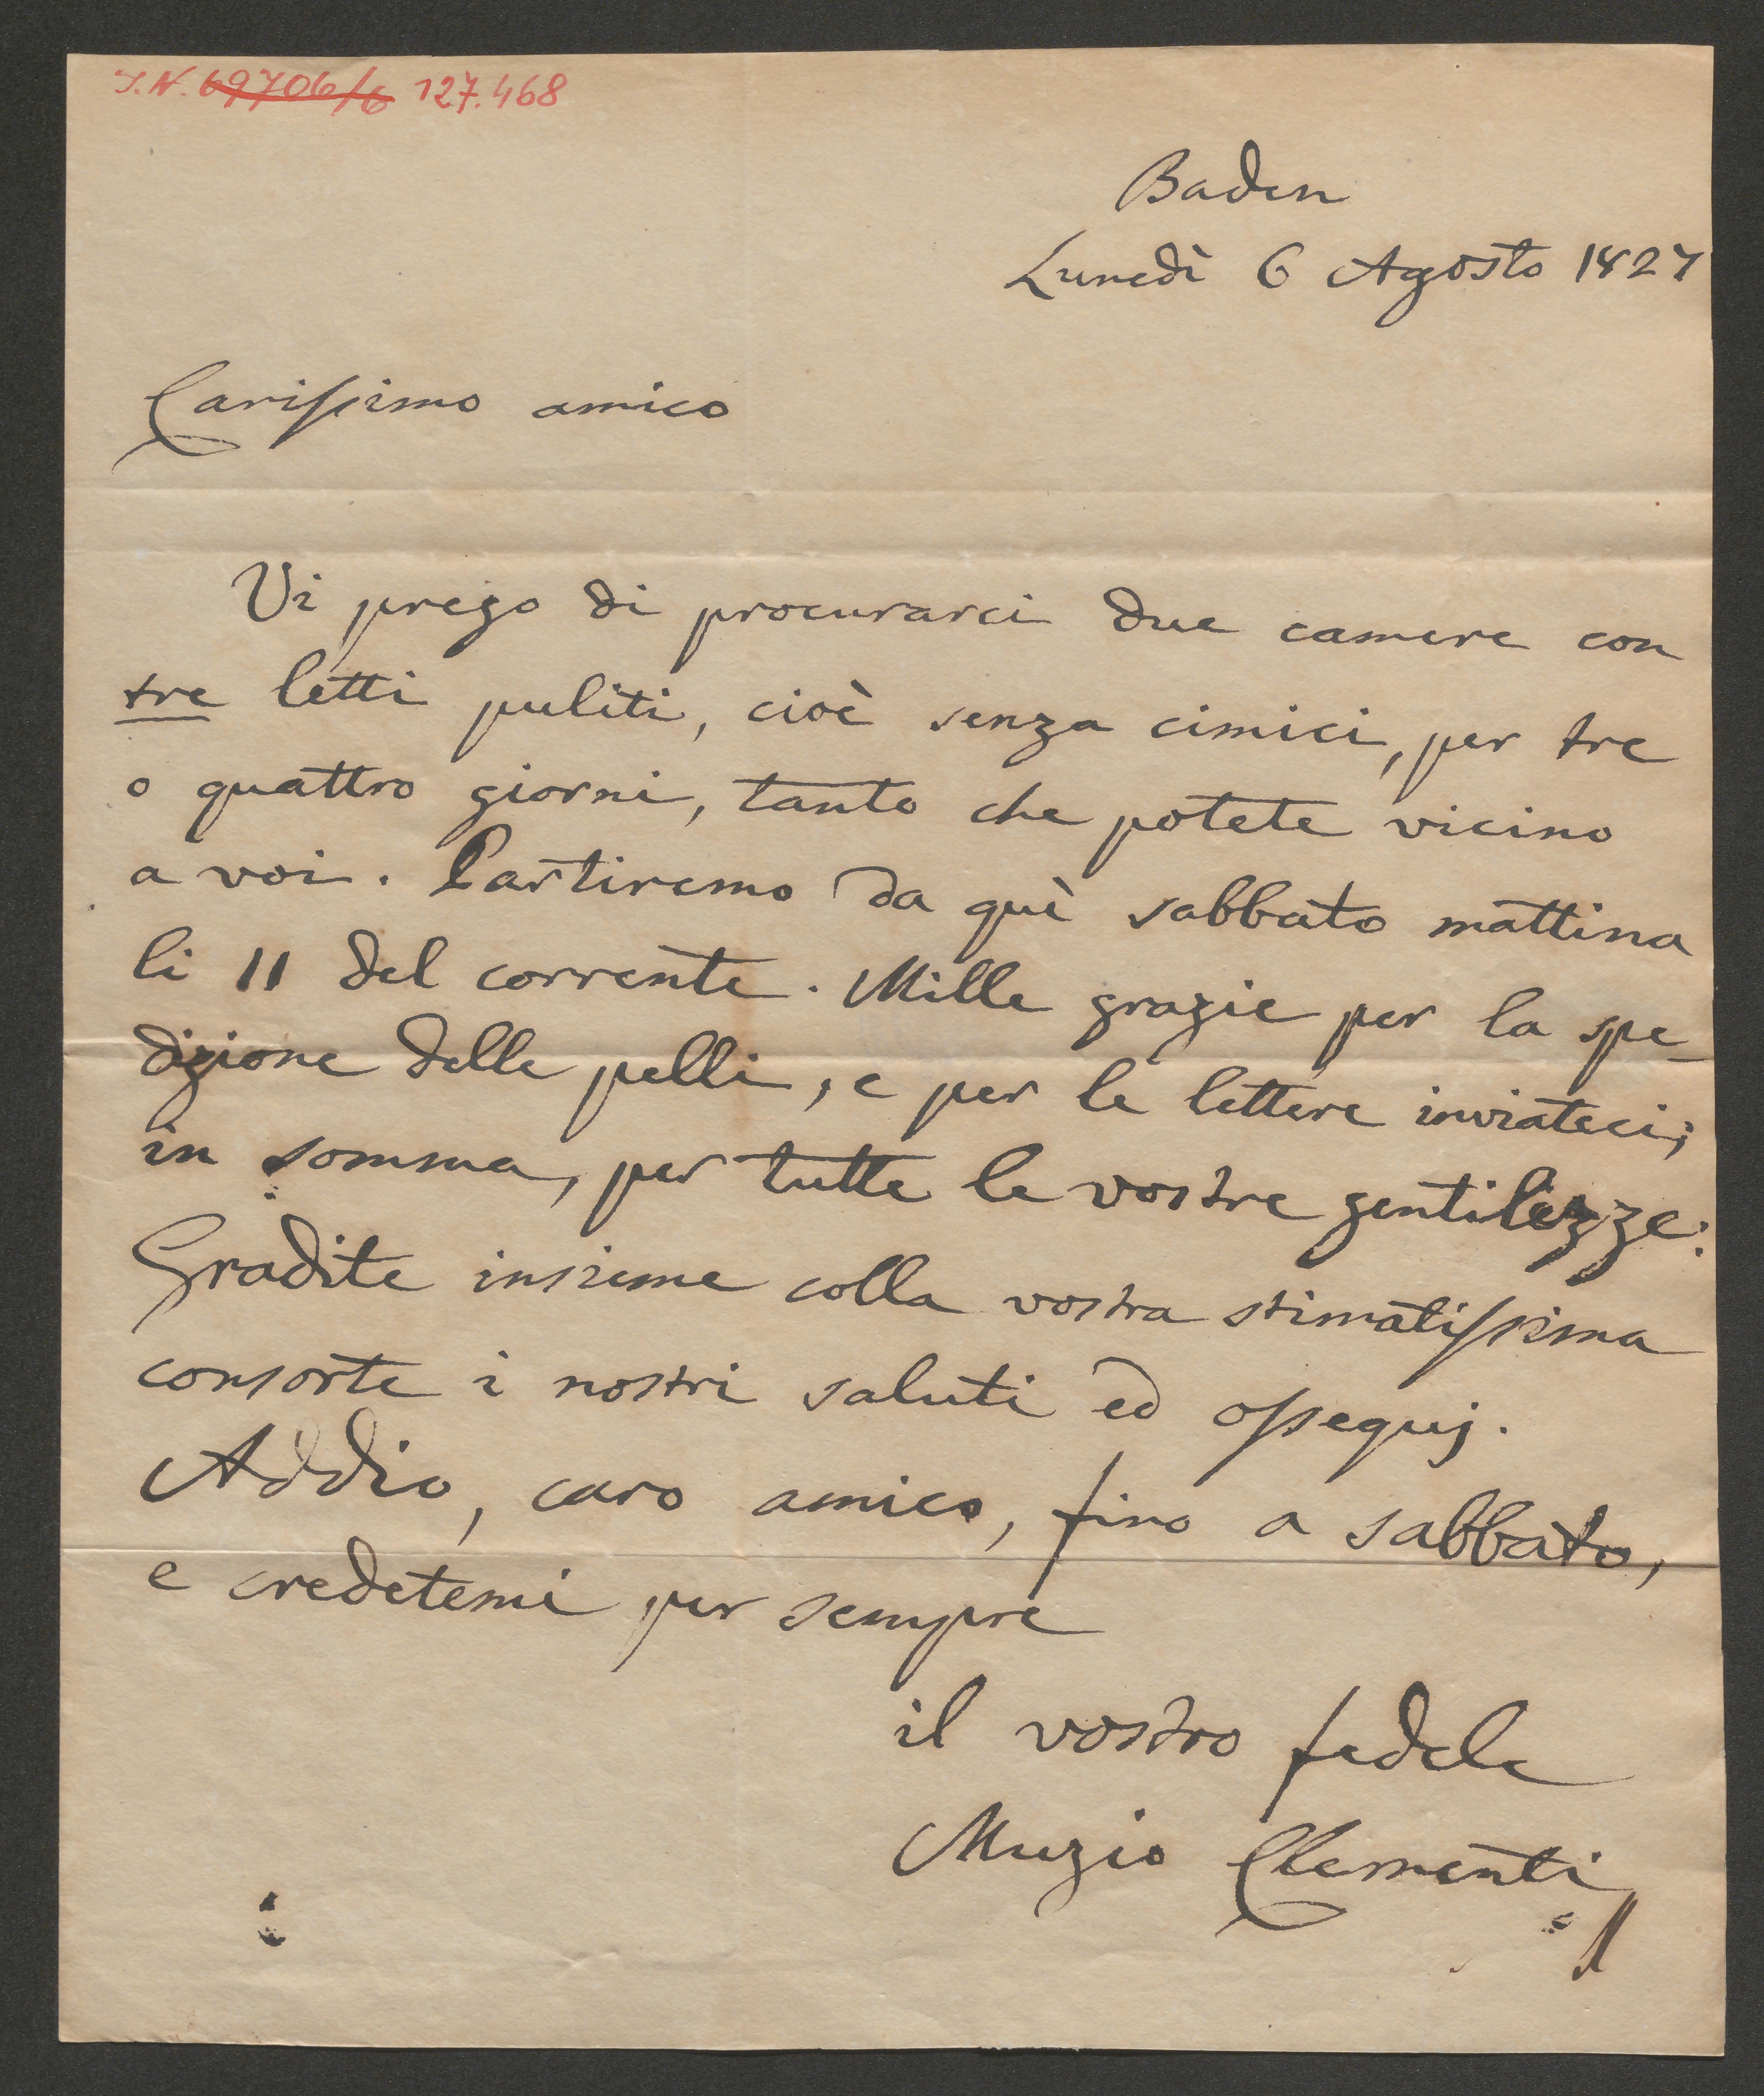 I.N. 69706/6 127.468
Baden
Lunedì 6 Agosto 1827
Carissimo amico
Vi prego di procurarci due camere con
tre letti puliti, cioè senza cimici, per tre
o quattro giorni, tanto che potete vicino
a voi. Partiremo da quì sabbato mattina
li 11 del corrente. Mille grazie per la spe-
dizione delle pelli, e per le lettere inviateci;
in somma, per tutte le vostre gentilezze.
Gradite insieme colla vostra stimatissima
consorte i nostri saluti ed ossequj.
Addio, caro amico, fino a sabbato,
e credetemi per sempre
il vostro fedele
Muzio Clementi